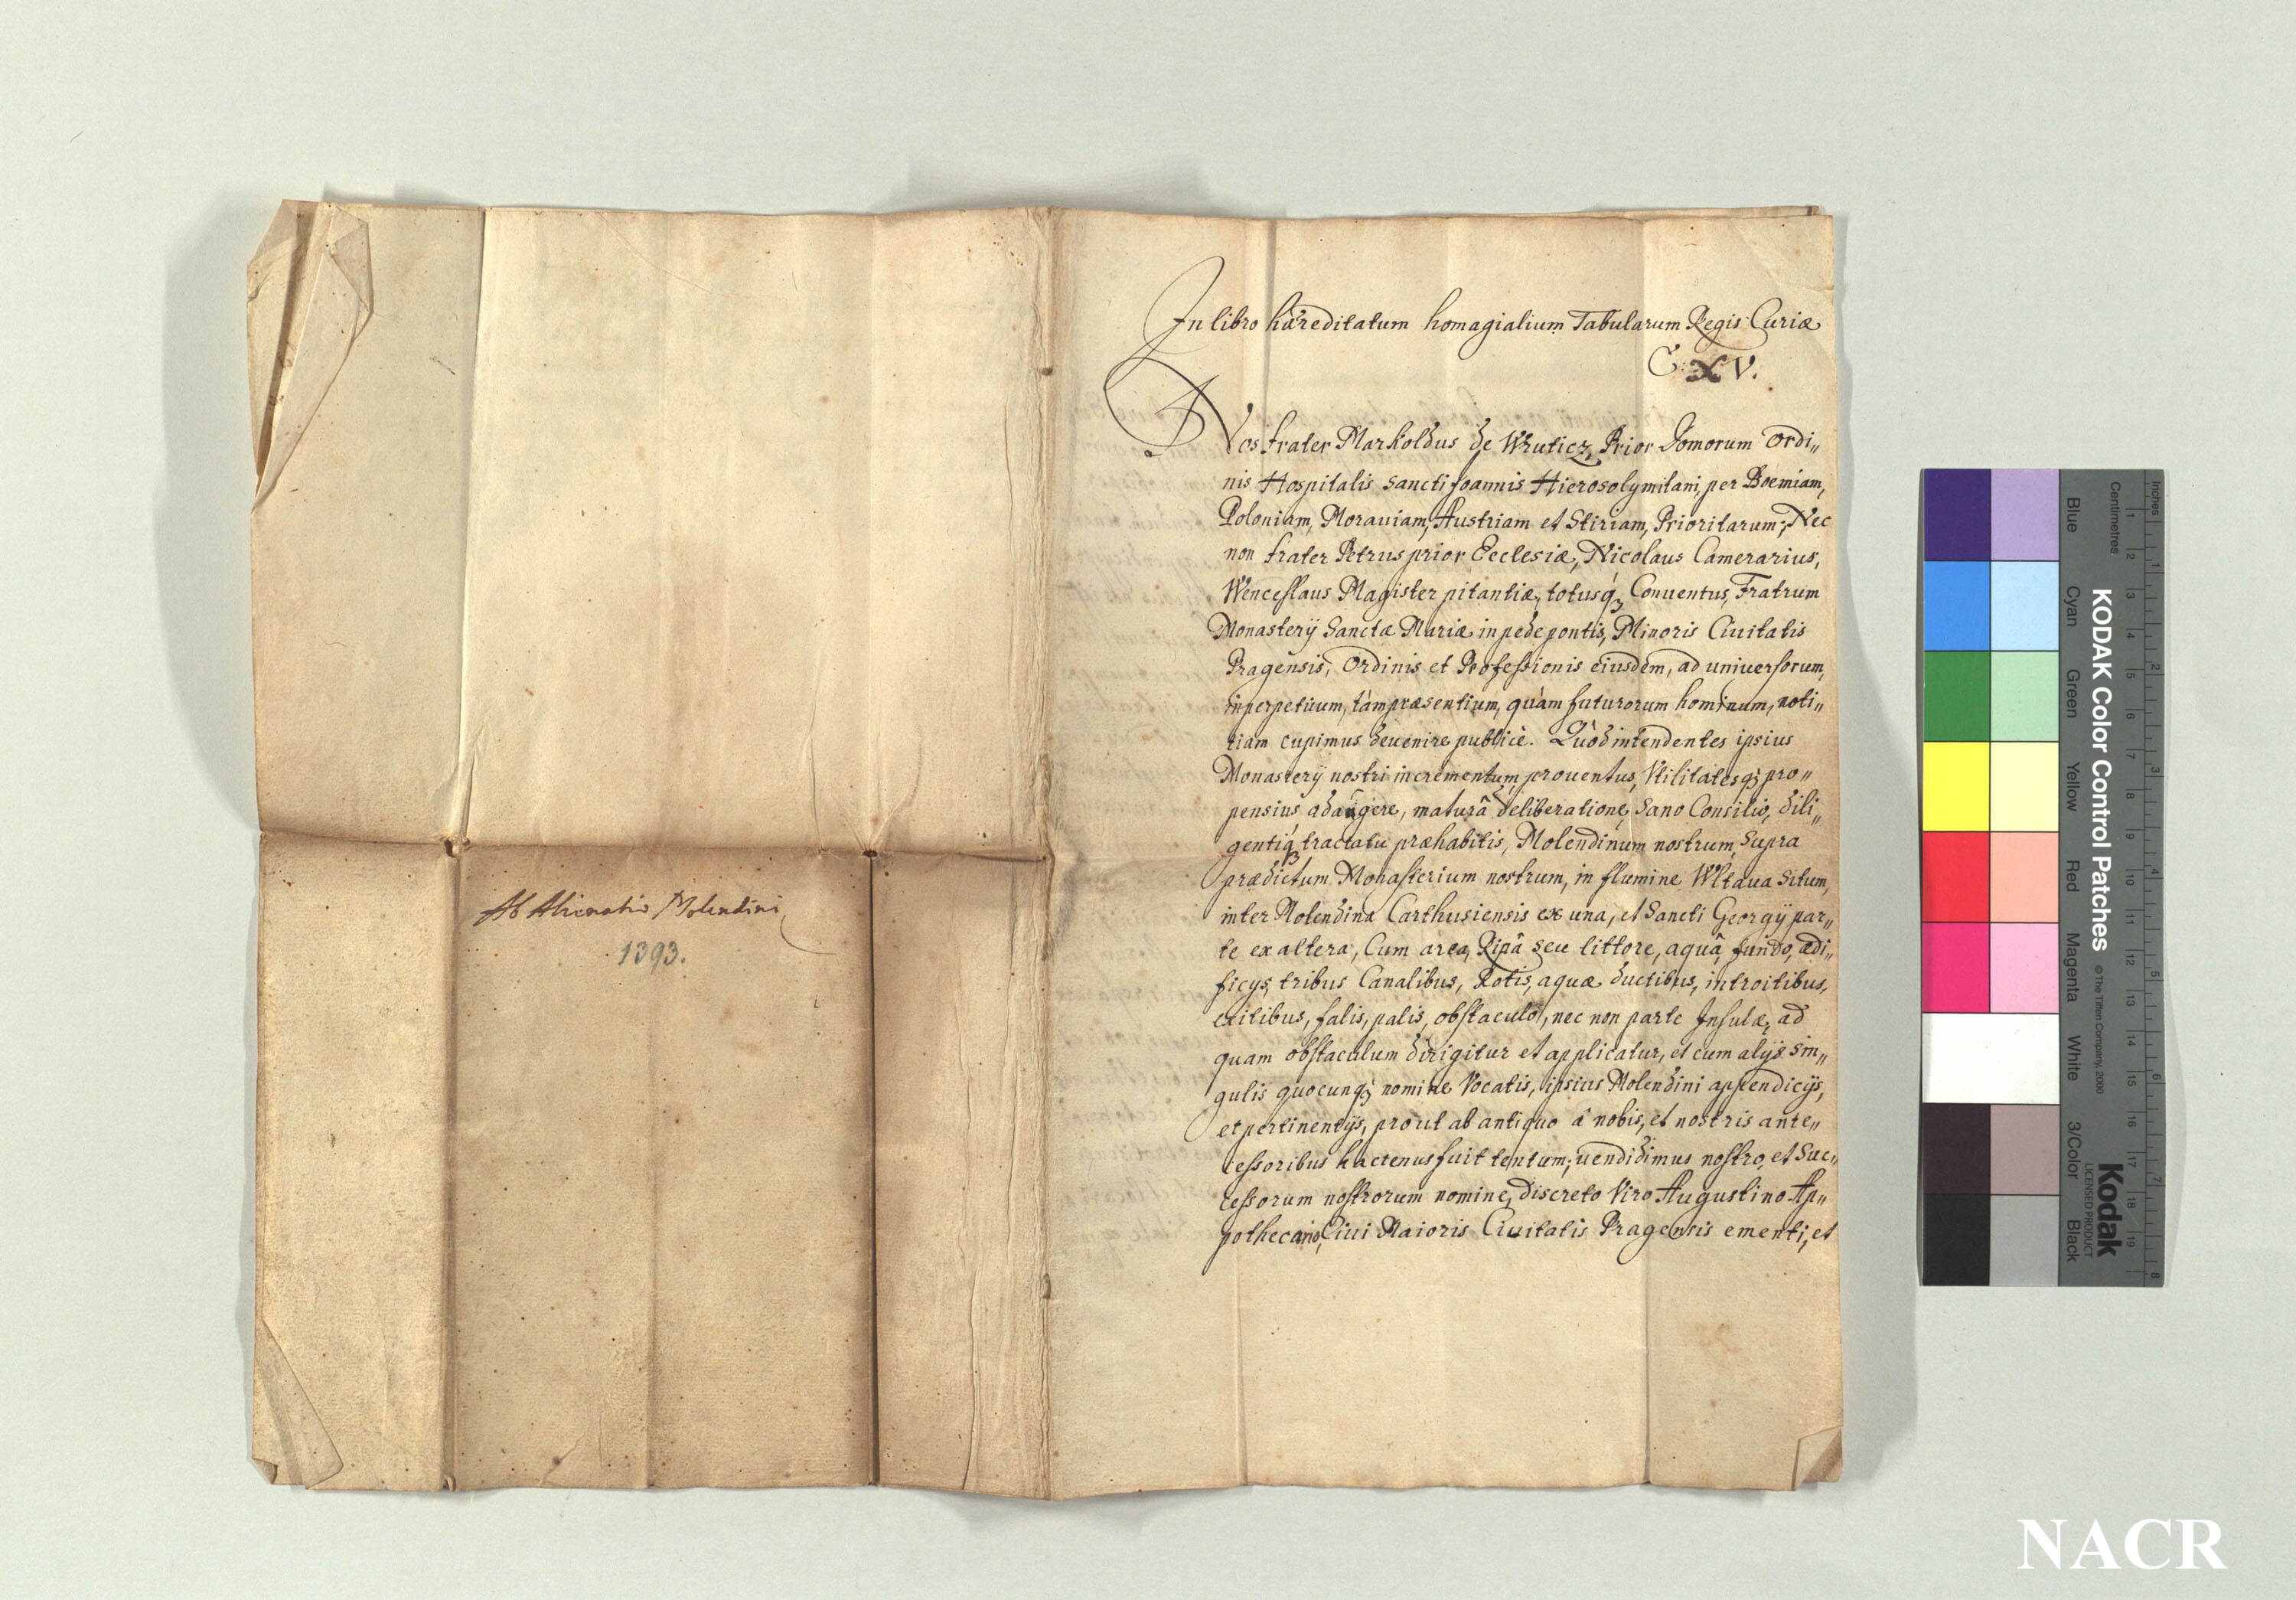 Alienatio Molendini
1393.
In libro hæreditatum homagialium Tabularum Regis Curiæ
C: XV.
Nos frater Markoldus de Wruticz, Prior Domorum Ordi„
nis Hospitalis Sancti Joannis Hierosolymitani, per Boemiam,
Poloniam, Morauiam, Austriam et Stiriam, Prioritarum; Nec
non frater Petrus prior Ecclesiæ, Nicolaus Camerarius,
Wenceslaus Magister pitantiæ, totusq́ꝫ Conuentus, Fratrum
Monasterÿ Sanctæ Mariæ in pede pontis, Minoris Ciuitatis
Pragensis, Ordinis et Professionis eiusdem, ad uniuersorum,
inperpetuum, tàm præsentium, quàm futurorum hominum, noti„
tiam cupimus deuenire publicè. Quòd intendentes ipsius
Monasterÿ nostri incrementum, prouentus, Vtilitatesqꝫ pro„
pensius adaugere, maturâ deliberatione, Sano Consilio, dili„
gentiq́ꝫ tractatu præhabitis, Molendinum nostrum, Supra
prædictum Monasterium nostrum, in flumine Wltaua Situm,
inter Molendina Carthusiensis ex una, et Sancti Georgÿ par„
te ex altera, Cum area, Ripâ seu littore, aquâ, fundo, ædi„
ficÿs, tribus Canalibus, Rotis, aquæ ductibus, introitibus,
exitibus, falis, palis, obstaculo, nec non parte Insulæ, ad
quam obstaculum dirigitur et applicatur, et cum alÿs Sin„
gulis quocunqꝫ nomine Vocatis, ipsius Molendini appendicÿs,
et pertinentÿs, prout ab antiquo à nobis, et nostris ante„
cessoribus hactenus fuit tentum; uendidimus nostro, et Suc„
cessorum nostrorum nomine, Discreto Viro Augustino Ap„
pothecario, Ciui Maioris Ciuitatis Pragensis ementi, et
KODAK Color Control Patches
© The Tiffen Company, 2000
Kodak
LICENSED PRODUCT
Inches
Centimetres
1 2 3 4 5 6 7 8 9 10 11 12 13 14 15 16 17 18 19
1 2 3 4 5 6 7 8
Blue Cyan Green Yellow Red Magenta White 3/Color Black
NACR